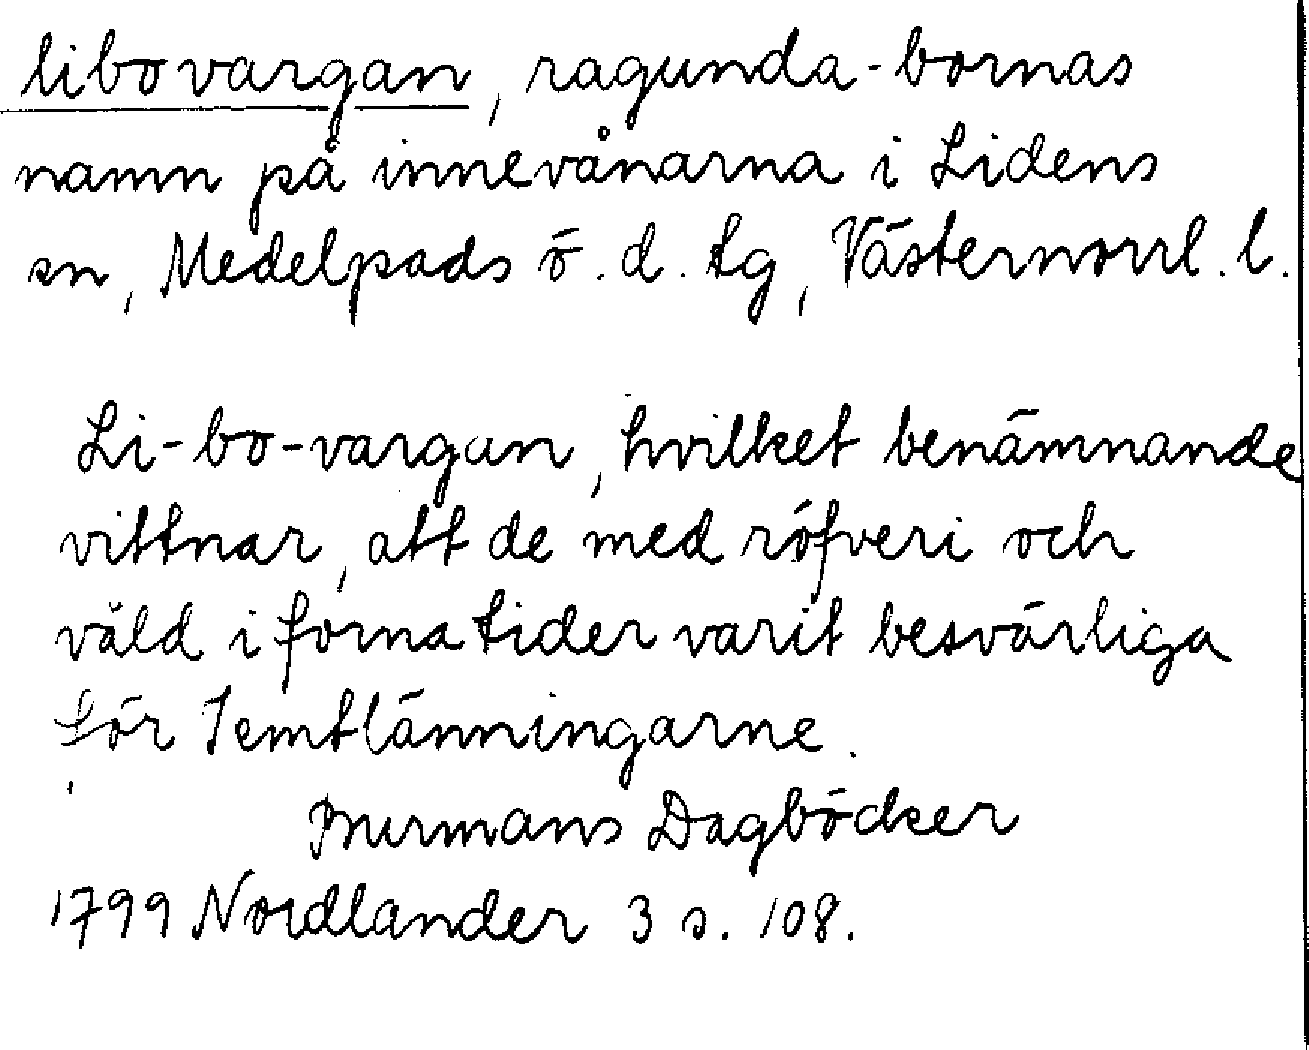 libovargan, ragunda-bornas
namn på innevånarna i Lidens
sn, Medelpads ö. d. tg, Västernorrl. l.
Li-bo-vargan, hvilket benämnande
vittnar, att de med röfveri och
våld i forna tider varit besvärliga
för Jemtlänningarne.
Burmans Dagböcker
1799 Nordlander 3 s. 108.